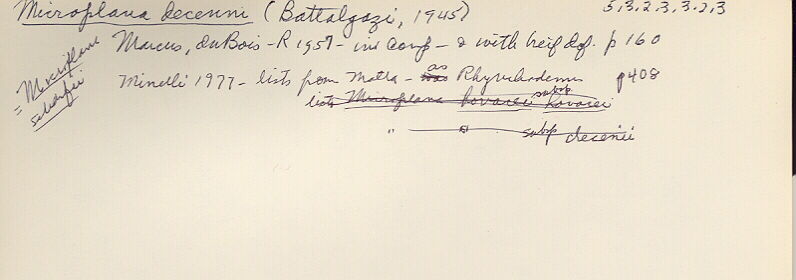 Microplana decenni (Battalgazi, 1945) 5,3,2,3,3,2,3
Marcus, du Bois-R 1957 - in comp - & with brief def. p 160
= Microplana
scharffi
Minelli 1977 - lists from Malta - as Rhynchodemus p408
lists Microplana kovacei subsp kovacei
" " subsp decenii